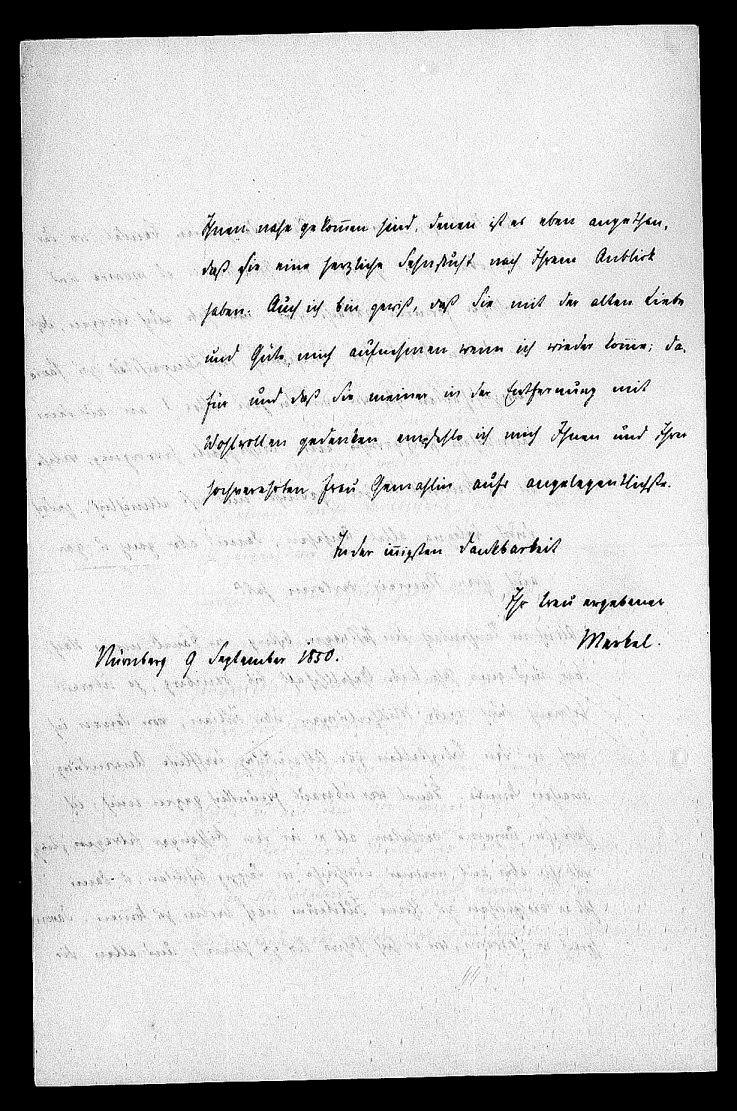 Ihnen nahe gekom̅en sind, denen ist es eben angethan,
daß sie eine herzliche Sehnsucht nach Ihrem Anblick
haben. Auch ich bin gewiß, daß Sie mit der alten Liebe
und Güte mich aufnehmen wenn ich wieder kom̅e; da-
für und daß Sie meiner in der Entfernung mit
Wohlwollen gedenken empfehle ich mich Ihnen und Ihrer
hochverehrten Frau Gemahlin aufs angelegentlichste.
In der innigsten Dankbarkeit
Ihr treu ergebener
Merkel.
Nürnberg 9 September 1850.